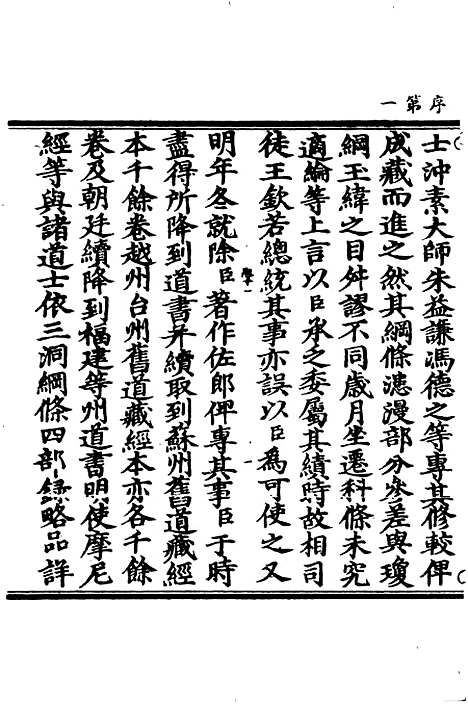 序第一
士沖素大師朱益謙馮德之等專其修較俾
成藏而進之然其綱條漶漫部分參差與瓊
綱玉緯之目舛謬不同歲月坐遷科條未究
適綸等上言以臣承之委屬其績時故相司
徒王欽若總統其事亦誤以臣為可使之又
明年冬就除臣著作佐郎俾專其事臣于時
盡得所降到道書并續取到蘇州舊道藏經
本千餘卷越州台州舊道藏經本亦各千餘
卷及朝廷續降到福建等州道書明使摩尼
經等與諸道士依三洞綱條四部錄略品詳